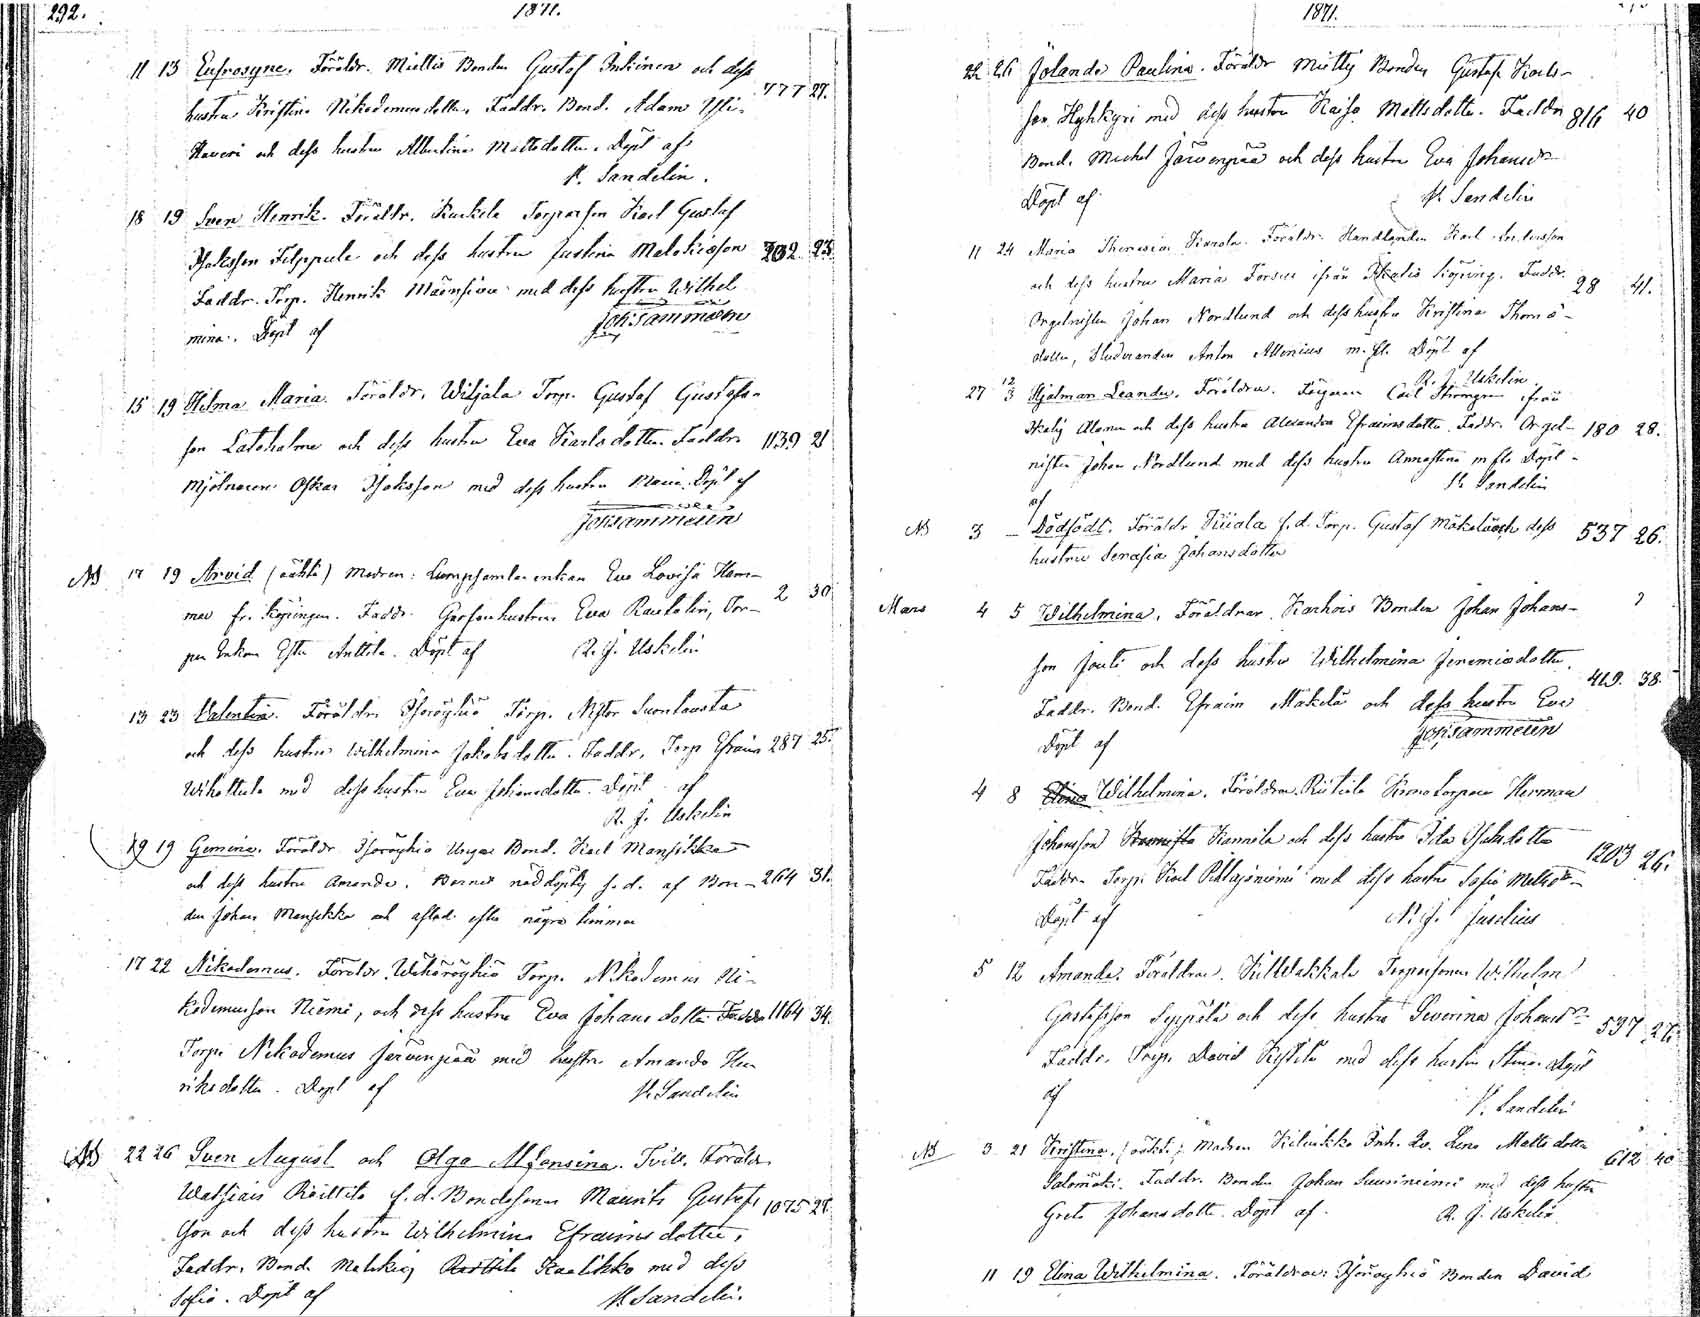 292. 1871.
11 13 Eufrosyne. Föräldr. Miettis Bonden Gustaf Inkinen och dess
hustru Kristina Nikodemusdotter. Faddr. Bond. Adam 777 27.
och dess hustru Albertina Mattsdotter. Döpt af
K. Sandelin.
18 19 Sven Henrik. Föräldr. Torparson Karl Gustaf
Isaksson Filppula och dess hustru Justina 202 23
Faddr. Torp. Henrik med dess hustru Wilhel
mina. Döpt af Joh. Sammelin
15 19 Hilma Maria. Föräldr. Wiljala Torp. Gustaf Gustafs-
son Latoholma och dess hustru Eva Karlsdotter. Faddr. 1139 21
Mjölnaren Oskar Isaksson med dess hustru Maria. Döpt af
Joh. Sammelin
NB 17 19 Arvid (oäkta) Modren: enkan Eva Lovisa Ham-
mar fr. Köpingen. Faddr. hustrun Eva Rautalin, Tor- 2 30
par Enkan Ester Anttila. Döpt af R. J. Uskelin
13 23 Valentin. Föräldr. Isoröyhiö Torp. Nestor Suonlausta
och dess hustru Wilhelmina Jakobsdotter. Faddr. Torp Efraim 287 25.
Wihattula med dess hustru Eva Johansdotter. Döpt af
R. J. Uskelin
19 19 Gemina. Föräldr. Isoröyhiö Unga Bond. Karl Mansikka
och dess hustru Amanda. Barnet nöddöpt s. d. af Bon- 264 31.
den Johan Mansikka och afled efter några timmar
17 22 Nikodemus. Föräldr. Wähäröyhiö Torp. Nikodemus Ni-
kodemusson Niemi, och dess hustru Eva Johansdotter. Faddr. 1164 34.
Torp. Nikodemus Järvenpää med hustru Amanda Hen
riksdotter. Döpt af K. Sandelin
NB 22 26 Sven August och Olga Alfonsina. Tvill. Föräldr.
Röittilä f.d. Bondesonen Maurits Gustafs 1075 28.
son och dess hustru Wilhelmina Efraimsdotter,
Faddr. Bond. Kaalikko med dess
Sofia. Döpt af K. Sandelin.
1871.
22 26 Jolanda Paulina. Föräldr. Bonden Gustaf Karls-
son Hyhkyri med dess hustru Kaisa Mattsdotter. Faddr. 816 40
Bond. Michel Järvenpää och dess hustru Eva Johansdr
Döpt af K. Sandelin
11 24 Maria Theresia Karola. Föräldr. Handlanden Karl
och dess hustru Maria Forsius ifrån Ikalis Köping. Faddr. 28 41.
Orgelnisten Johan Nordlund och dess hustru Kristina Thomas-
dotter, Studeranden Anton Allenius m. fl. Döpt af
R. J. Uskelin.
27 12/3 Hjalmar Leander. Föräldrar. Färgaren Carl Strömgren ifrån
och dess hustru Alexandra Efraimsdotter. Faddr. Orgel- 180 28.
nisten Johan Nordlund med dess hustru Annastina m fl. Döpt
af K. Sandelin
NB 3 — Dödfödt. Föräldr. f. d. Torp. Gustaf Mäkelä och dess 537 26.
hustru Serafia Johansdotter
Mars 4 5 Wilhelmina. Föräldrar. Karhois Bonden Johan Johans- ?
son Jouti och dess hustru Wilhelmina Jeremiasdotter. 419. 38.
Faddr. Bond. Efraim Mäkelä och dess hustru Eva
Döpt af Joh. Sammelin
4 8 Elina Wilhelmina. Föräldrar. Riitiala Herman
Johansson Kannila och dess hustru Ida Isaksdotter 1203 26.
Faddr. Torp. Karl Pohlajaniemi med dess hustru Sofia Mattsdr
Döpt af N. J. Juselius
5 12 Amanda. Föräldrar. Torparsonen Wilhelm
Gustafsson Syppälä och dess hustru Severina Johansdr 537 27.
Faddr. Torp. David med dess hustru Stina. Döpt
af K. Sandelin
NB 3 21 Kristina. (oäkta) Modren Kilvakko Inh. Lena Mattsdotter
Salomäki. Faddr. Bonden Johan Suusiniemi med dess hustru 612 40
Greta Johansdotter. Döpt af. R. J. Uskelin
11 19 Elina Wilhelmina. Föräldrar: Isoröyhiö Bonden David